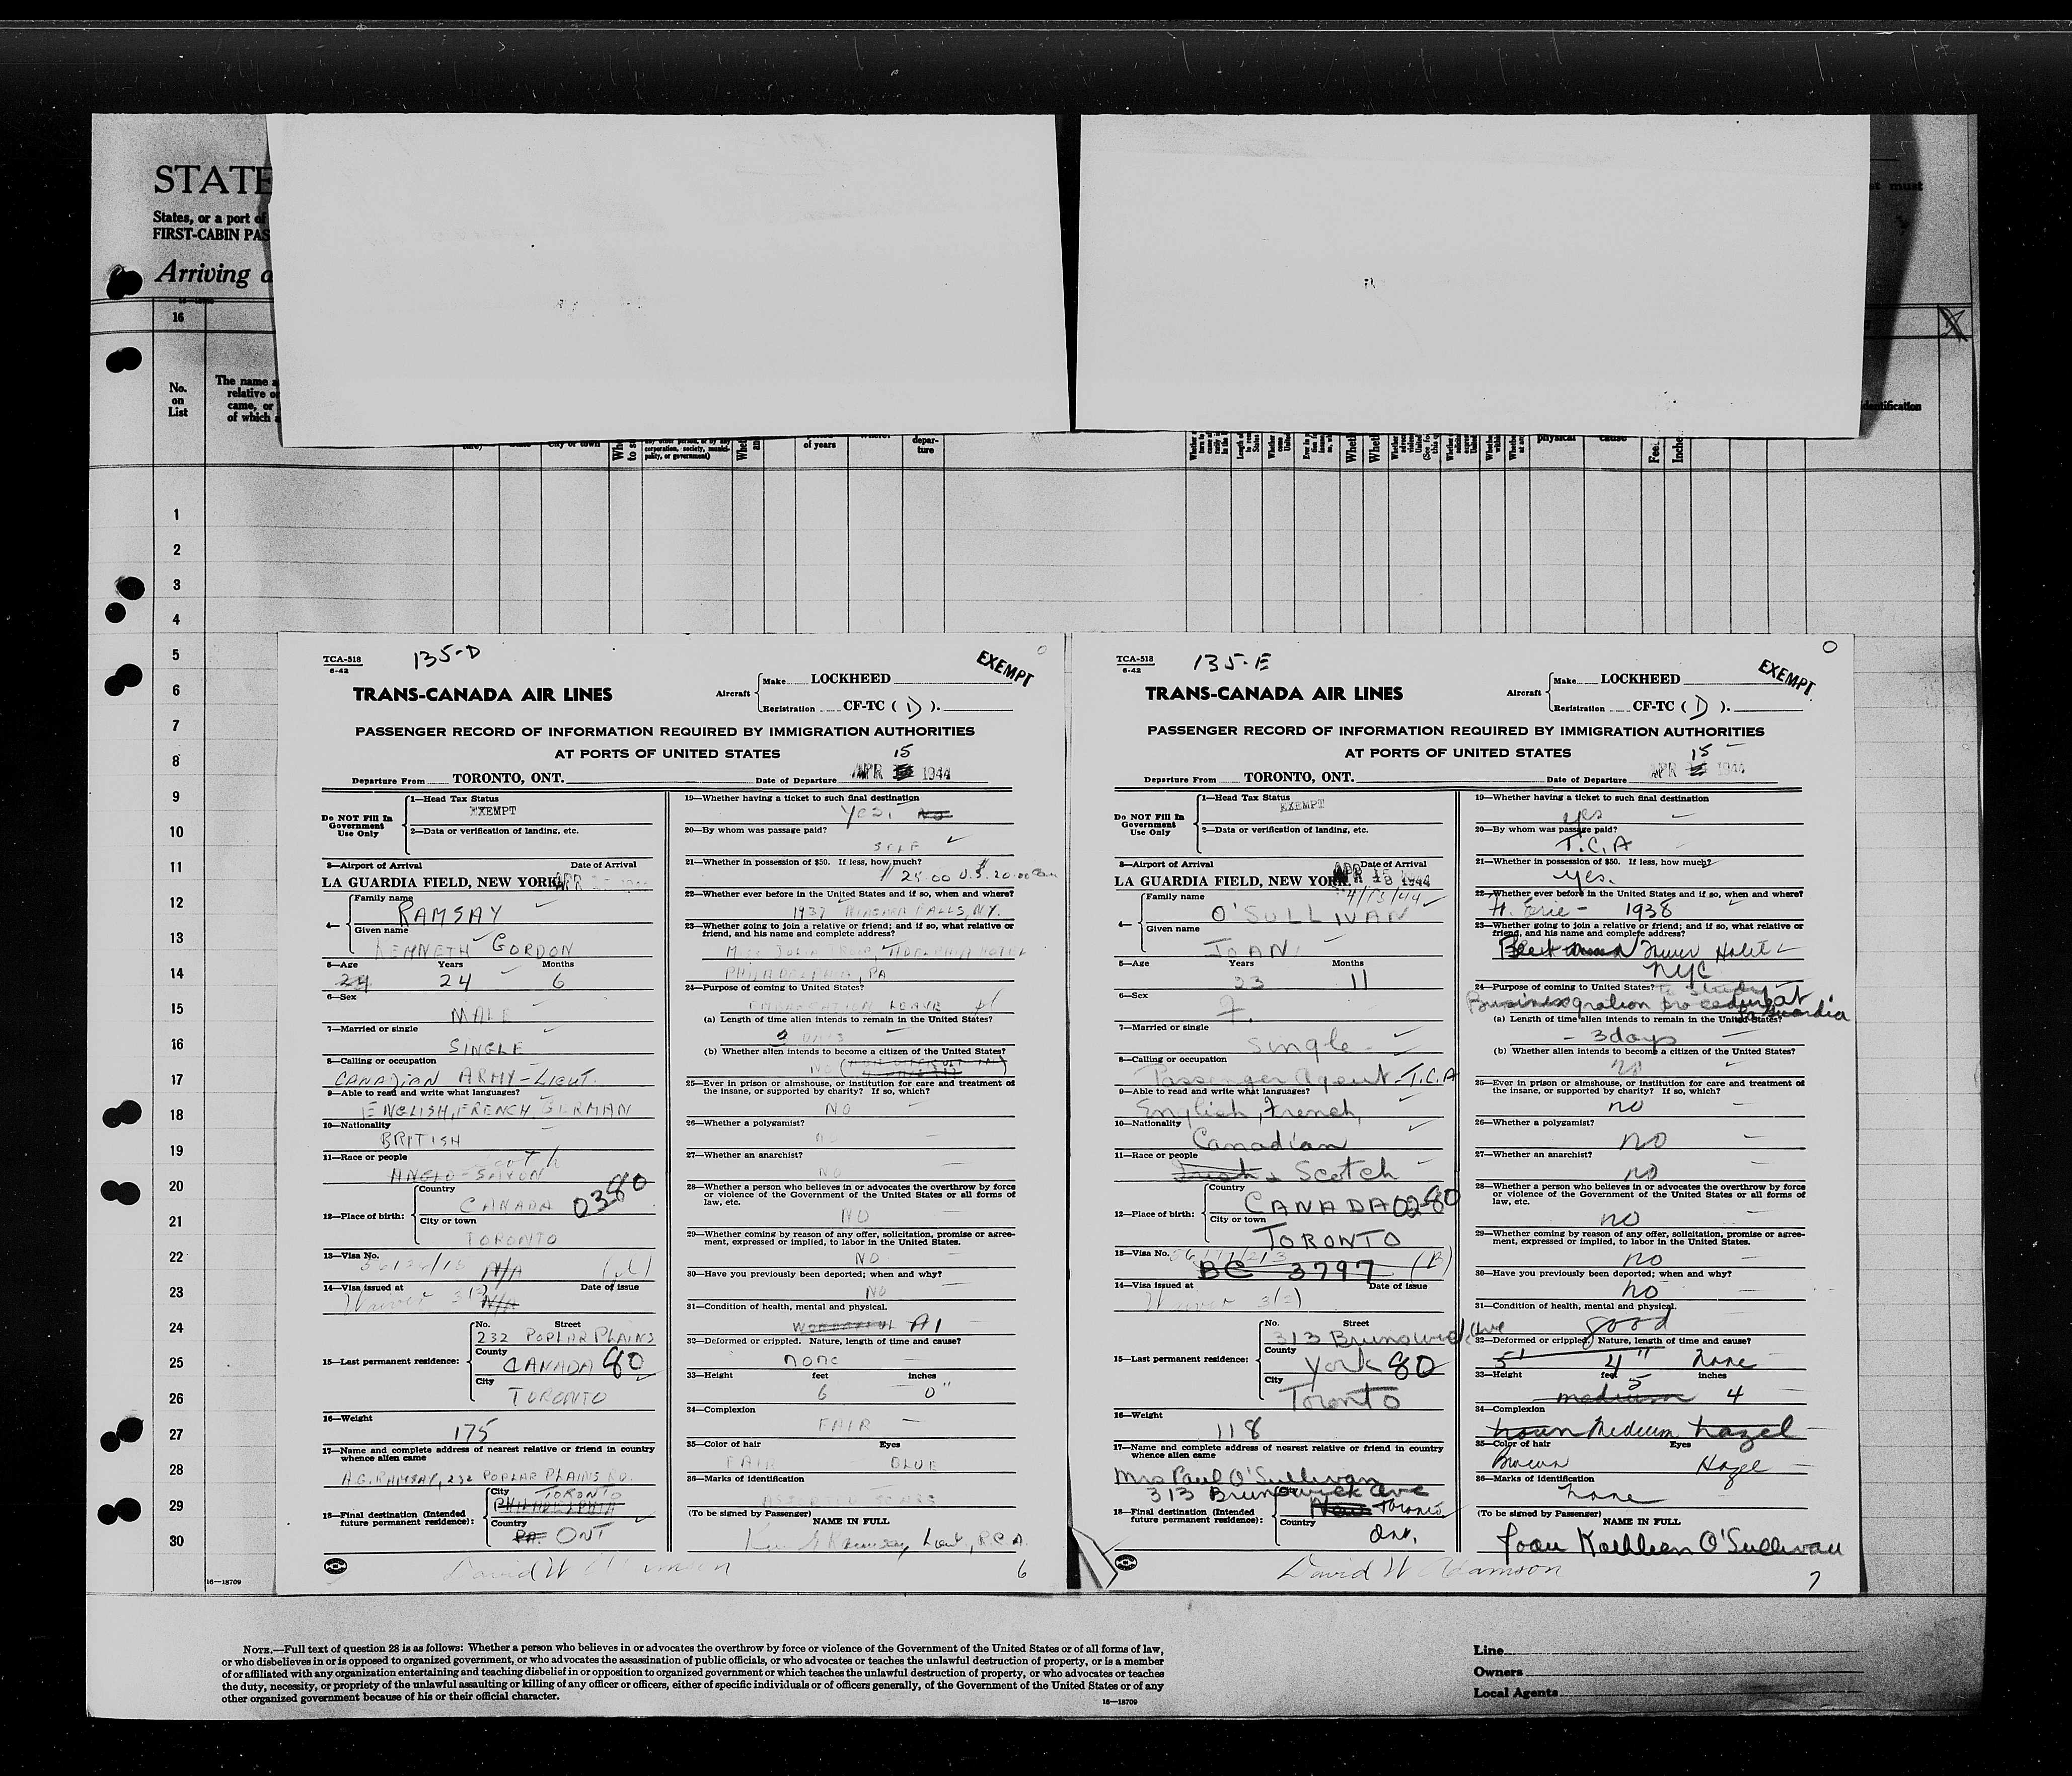 STATE
States, or a port of
FIRST-CABIN PAS
Arriving a
st must
16
No.
on
List
The name a
relative or
came, or
of which a
City or town
corporation, society, munici-
pality, or government)
of years
depar-
ture
physical
cause
Feet
Inches
identification
1
2
3
4
5
6
7
8
9
10
11
12
13
14
15
16
17
18
19
20
21
22
23
24
25
26
27
28
29
30
16—18709
TCA-518
6-42
135-D
EXEMPT
TRANS-CANADA AIR LINES
Aircraft
Make LOCKHEED
Registration CF-TC ( D ).
PASSENGER RECORD OF INFORMATION REQUIRED BY IMMIGRATION AUTHORITIES
AT PORTS OF UNITED STATES
15
Departure From TORONTO, ONT. Date of Departure APR 1944
Do NOT Fill In
Government
Use Only
1—Head Tax Status
EXEMPT
2—Data or verification of landing, etc.
3—Airport of Arrival Date of Arrival
LA GUARDIA FIELD, NEW YORK. APR 1944
4—
Family name
RAMSAY
Given name
KENNETH GORDON
5—Age Years Months
24 24 6
6—Sex
MALE
7—Married or single
SINGLE
8—Calling or occupation
CANADIAN ARMY - LIEUT.
9—Able to read and write what languages?
ENGLISH, FRENCH, GERMAN
10—Nationality
BRITISH
11—Race or people
ANGLO-SAXON
12—Place of birth:
Country
CANADA 0380
City or town
TORONTO
13—Visa No.
N/A
14—Visa issued at Date of issue
Waiver 3(2)
N/A
15—Last permanent residence:
No. Street
232 POPLAR PLAINS
County
CANADA 80
City
TORONTO
16—Weight
175
17—Name and complete address of nearest relative or friend in country
whence alien came
A.G. RAMSAY, 232 POPLAR PLAINS RD.
18—Final destination (Intended
future permanent residence):
City TORONTO
PHILADELPHIA
Country
PA. ONT
David W Adamson
19—Whether having a ticket to such final destination
Yes. No
20—By whom was passage paid?
SELF
21—Whether in possession of $50. If less, how much?
$25.00 U.S. 20.00 Can
22—Whether ever before in the United States and if so, when and where?
1937 NIAGARA FALLS, N.Y.
23—Whether going to join a relative or friend; and if so, what relative or
friend, and his name and complete address?
PHILADELPHIA, PA
24—Purpose of coming to United States?
EMBARKATION LEAVE
(a) Length of time alien intends to remain in the United States?
3 DAYS
(b) Whether alien intends to become a citizen of the United States?
NO
25—Ever in prison or almshouse, or institution for care and treatment of
the insane, or supported by charity? If so, which?
NO
26—Whether a polygamist?
NO
27—Whether an anarchist?
NO
28—Whether a person who believes in or advocates the overthrow by force
or violence of the Government of the United States or all forms of
law, etc.
NO
29—Whether coming by reason of any offer, solicitation, promise or agree-
ment, expressed or implied, to labor in the United States.
NO
30—Have you previously been deported; when and why?
NO
31—Condition of health, mental and physical.
WONDERFUL A1
32—Deformed or crippled. Nature, length of time and cause?
none
33—Height feet inches
6 0"
34—Complexion
FAIR
35—Color of hair Eyes
FAIR BLUE
36—Marks of identification
ASSORTED SCARS
(To be signed by Passenger) NAME IN FULL
Ramsay Lieut., R.C.A.
6
TCA-518
6-42
135-E
EXEMPT
TRANS-CANADA AIR LINES
Aircraft
Make LOCKHEED
Registration CF-TC ( D ).
PASSENGER RECORD OF INFORMATION REQUIRED BY IMMIGRATION AUTHORITIES
AT PORTS OF UNITED STATES
15
Departure From TORONTO, ONT. Date of Departure APR 1944
Do NOT Fill In
Government
Use Only
1—Head Tax Status
EXEMPT
2—Data or verification of landing, etc.
3—Airport of Arrival Date of Arrival
LA GUARDIA FIELD, NEW YORK. APR 1944
4/15/44
4—
Family name
O'SULLIVAN
Given name
JOAN
5—Age Years Months
23 11
6—Sex
F.
7—Married or single
Single
8—Calling or occupation
Passenger Agent - T.C.A
9—Able to read and write what languages?
English, French,
10—Nationality
Canadian
11—Race or people
Irish & Scotch
12—Place of birth:
Country
CANADA 0280
City or town
TORONTO
13—Visa No.
BC 3797
14—Visa issued at Date of issue
Waiver 3(2)
15—Last permanent residence:
No. Street
313 Brunswick Ave
County
York 80
City
Toronto
16—Weight
118
17—Name and complete address of nearest relative or friend in country
whence alien came
Mrs Paul O'Sullivan
313 Brunswick Ave
18—Final destination (Intended
future permanent residence):
New Toronto
Country
Ont.
David W Adamson
19—Whether having a ticket to such final destination
yes
20—By whom was passage paid?
T.C.A
21—Whether in possession of $50. If less, how much?
yes.
22—Whether ever before in the United States and if so, when and where?
Ft. Erie - 1938
23—Whether going to join a relative or friend; and if so, what relative or
friend, and his name and complete address?
Tower Hotel
NYC
24—Purpose of coming to United States? To Study
Business gration procedure at
La Guardia
(a) Length of time alien intends to remain in the United States?
- 3 days
(b) Whether alien intends to become a citizen of the United States?
no
25—Ever in prison or almshouse, or institution for care and treatment of
the insane, or supported by charity? If so, which?
no
26—Whether a polygamist?
no
27—Whether an anarchist?
no
28—Whether a person who believes in or advocates the overthrow by force
or violence of the Government of the United States or all forms of
law, etc.
no
29—Whether coming by reason of any offer, solicitation, promise or agree-
ment, expressed or implied, to labor in the United States.
no
30—Have you previously been deported; when and why?
no
31—Condition of health, mental and physical.
good
32—Deformed or crippled. Nature, length of time and cause?
5' 4" none
33—Height feet inches
5
medium 4
34—Complexion
brown Medium hazel
35—Color of hair Eyes
Brown Hazel
36—Marks of identification
none
(To be signed by Passenger) NAME IN FULL
Joan Kathleen O'Sullivan
7
NOTE.—Full text of question 28 is as follows: Whether a person who believes in or advocates the overthrow by force or violence of the Government of the United States or of all forms of law,
or who disbelieves in or is opposed to organized government, or who advocates the assassination of public officials, or who advocates or teaches the unlawful destruction of property, or is a member
of or affiliated with any organization entertaining and teaching disbelief in or opposition to organized government or which teaches the unlawful destruction of property, or who advocates or teaches
the duty, necessity, or propriety of the unlawful assaulting or killing of any officer or officers, either of specific individuals or of officers generally, of the Government of the United States or of any
other organized government because of his or their official character.
16—18709
Line
Owners
Local Agents